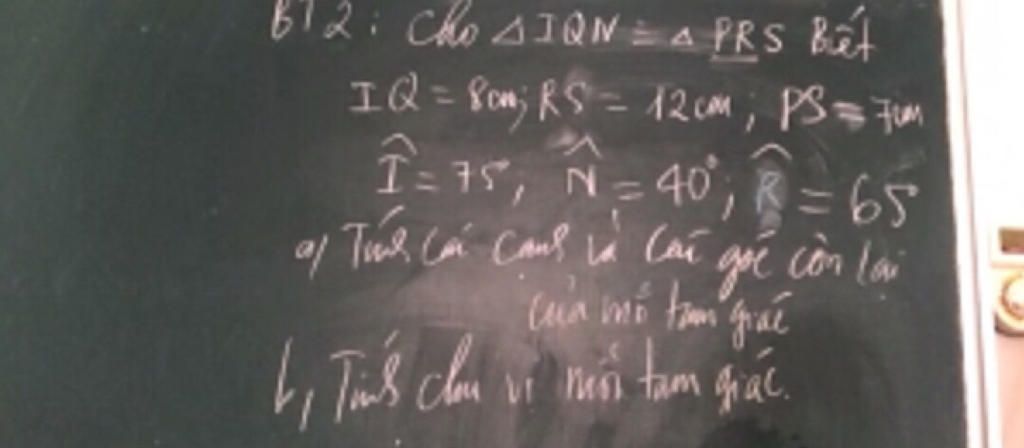 BT2: Cho △IQN = △ PRS Biết
IQ = 8cm; RS = 12cm; PS = 7cm
Î = 75°, N̂ = 40°; R̂ = 65°
a) Tính các cạnh và các góc còn lại
của mỗi tam giác
b, Tính chu vi mỗi tam giác.